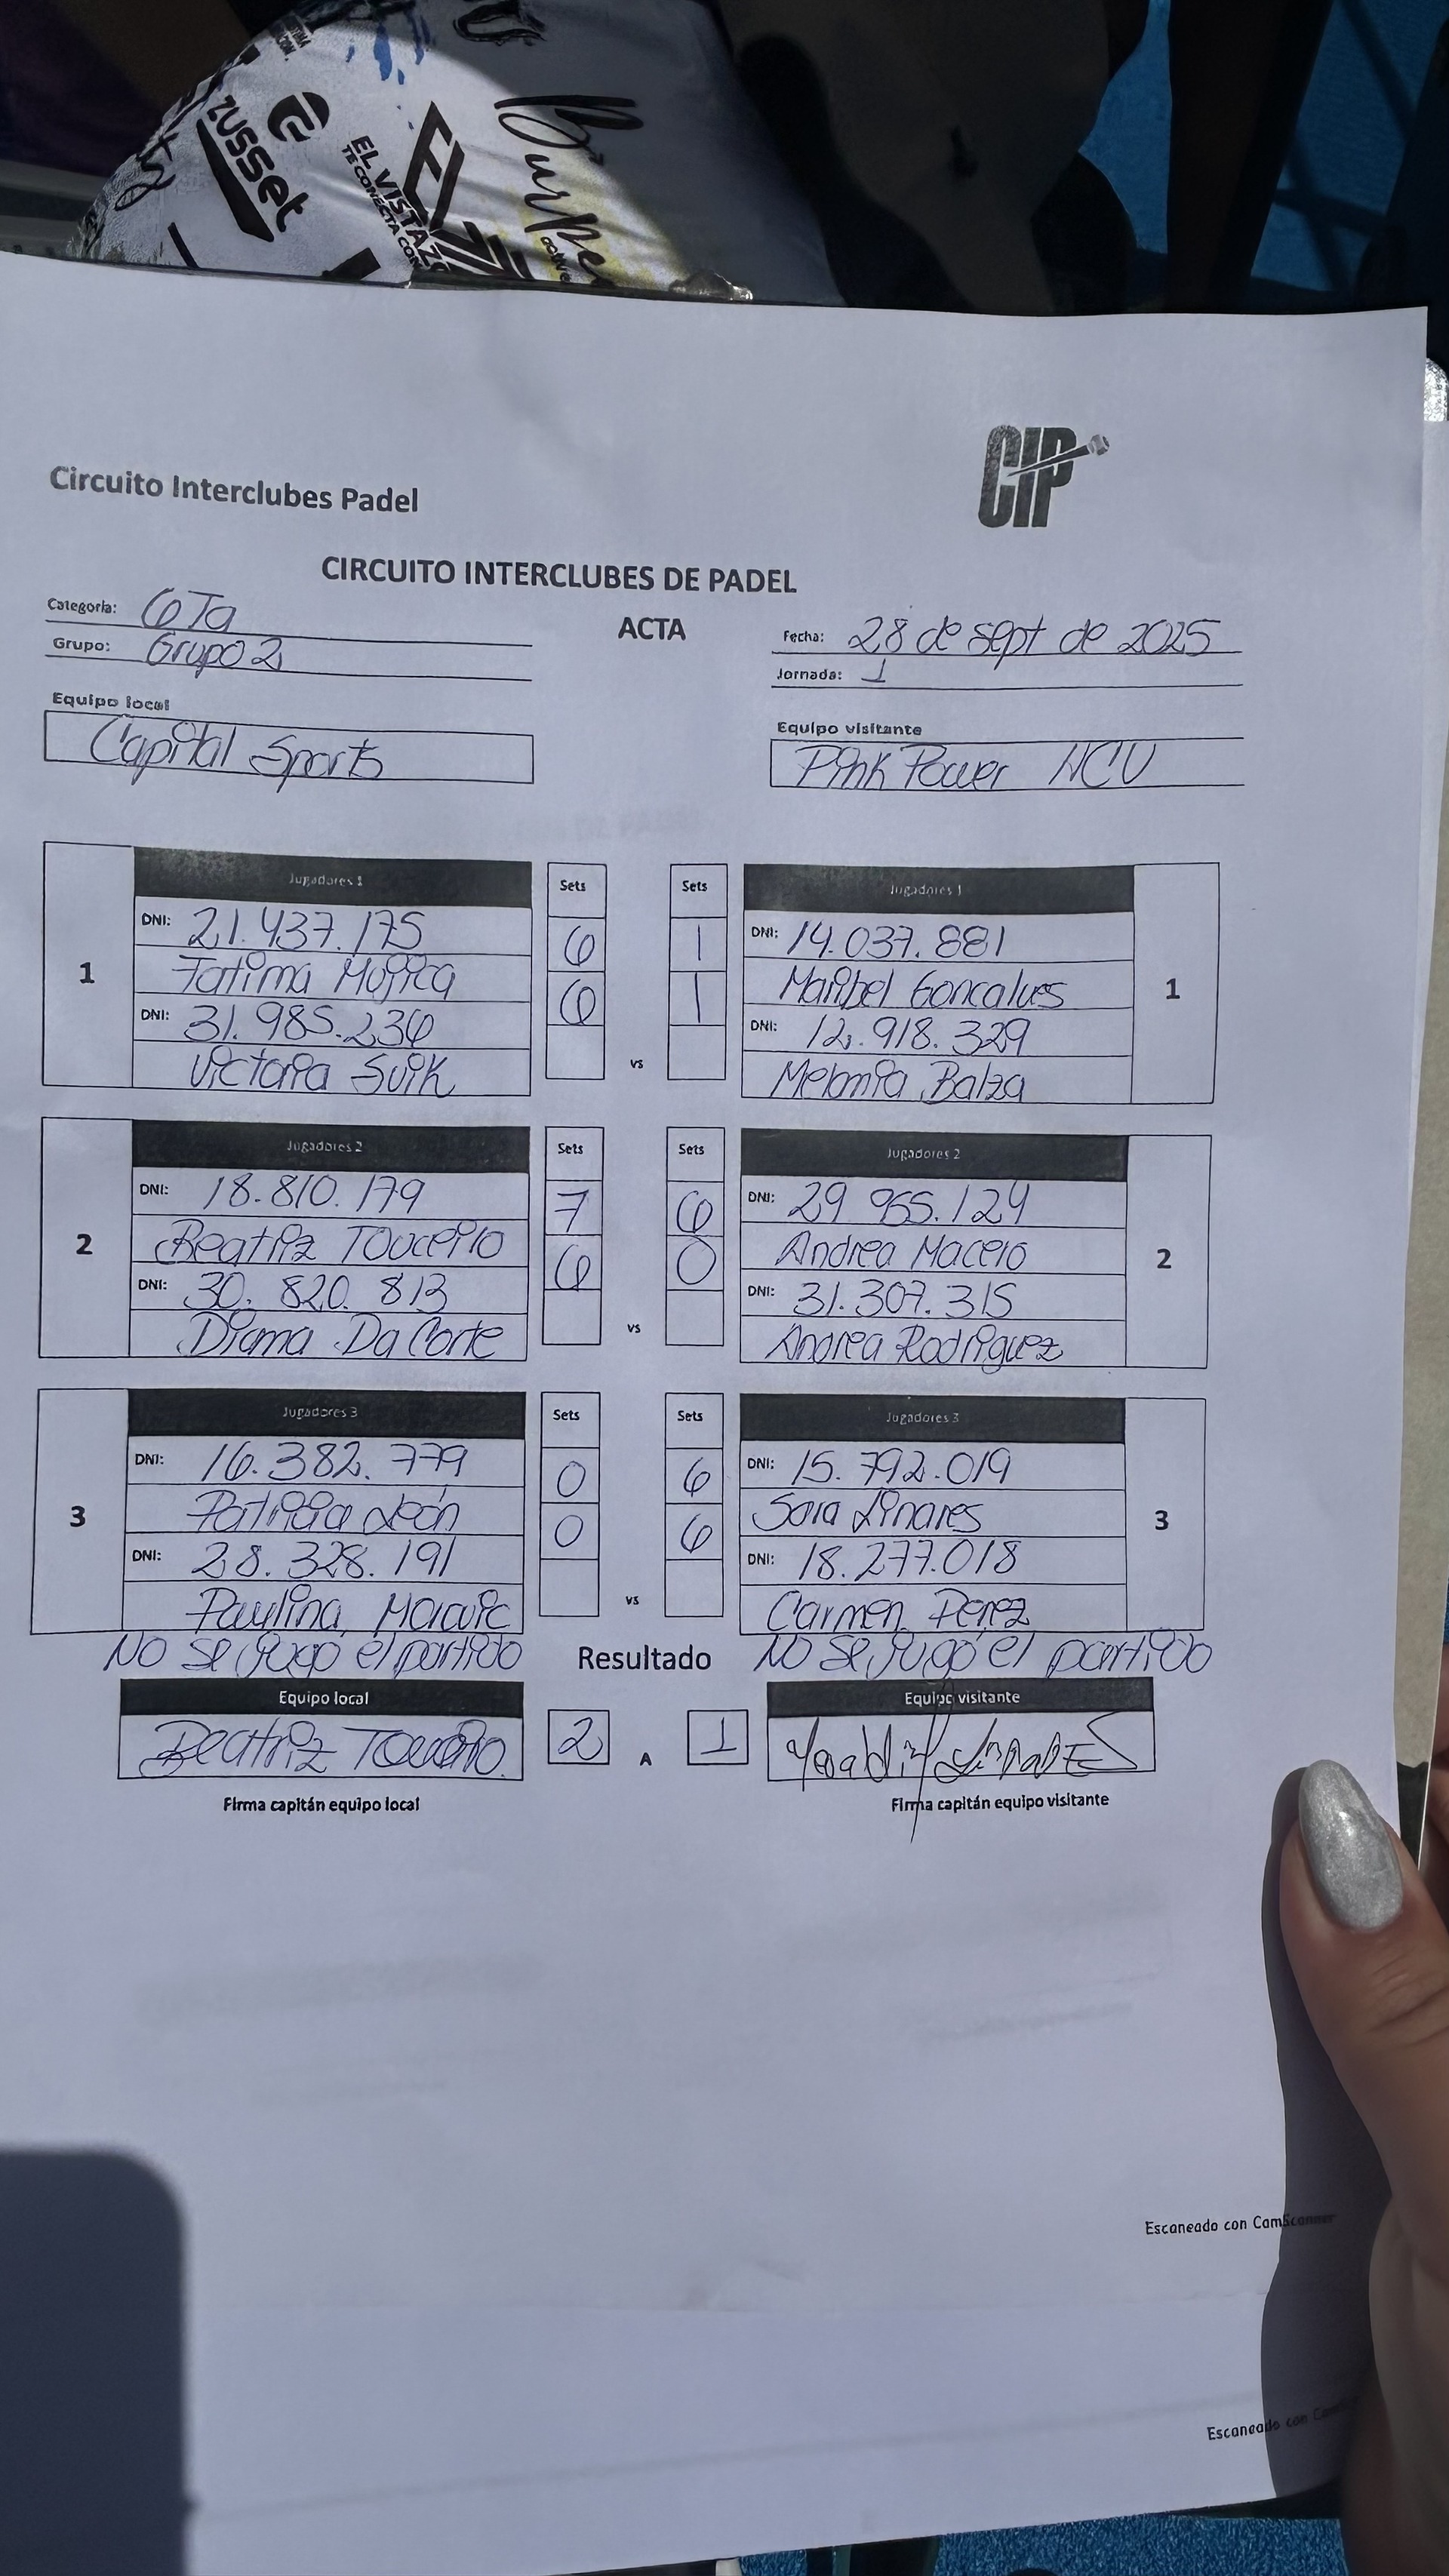 ZUSSet
EL VISTAZO
TE CONECTA CON
Circuito Interclubes Padel
CIP
CIRCUITO INTERCLUBES DE PADEL
Categoría: 6Ta
ACTA
Fecha: 28 de sept de 2025
Grupo: Grupo 2
Jornada: 1
Equipo local
Equipo visitante
Capital Sports
Pink Power HCV
Jugadores 1 Sets Sets Jugadores 1
DNI: 21.437.175 6 1 DNI: 14.037.881
Fatima Mujica Maribel Goncalves
1 1
DNI: 31.985.236 6 1 DNI: 12.918.329
Victoria Svik vs Melania Balza
Jugadores 2 Sets Sets Jugadores 2
DNI: 18.810.179 7 6 DNI: 29 955.124
Beatriz Touceiro Andrea Maceio
2 2
DNI: 30. 820. 813 6 0 DNI: 31.307.315
Diama Da Corte vs Andrea Rodriguez
Jugadores 3 Sets Sets Jugadores 3
DNI: 16.382.779 0 6 DNI: 15.792.019
Patricia León Sara Linares
3 3
DNI: 28.328.191 0 6 DNI: 18.277.018
Paulina vs Carmen Perez
No se jugó el partido Resultado No se jugó el partido
Equipo local Equipo visitante
Beatriz Touceiro. 2 A 1
Firma capitán equipo local Firma capitán equipo visitante
Escaneado con CamScanner
Escaneado con